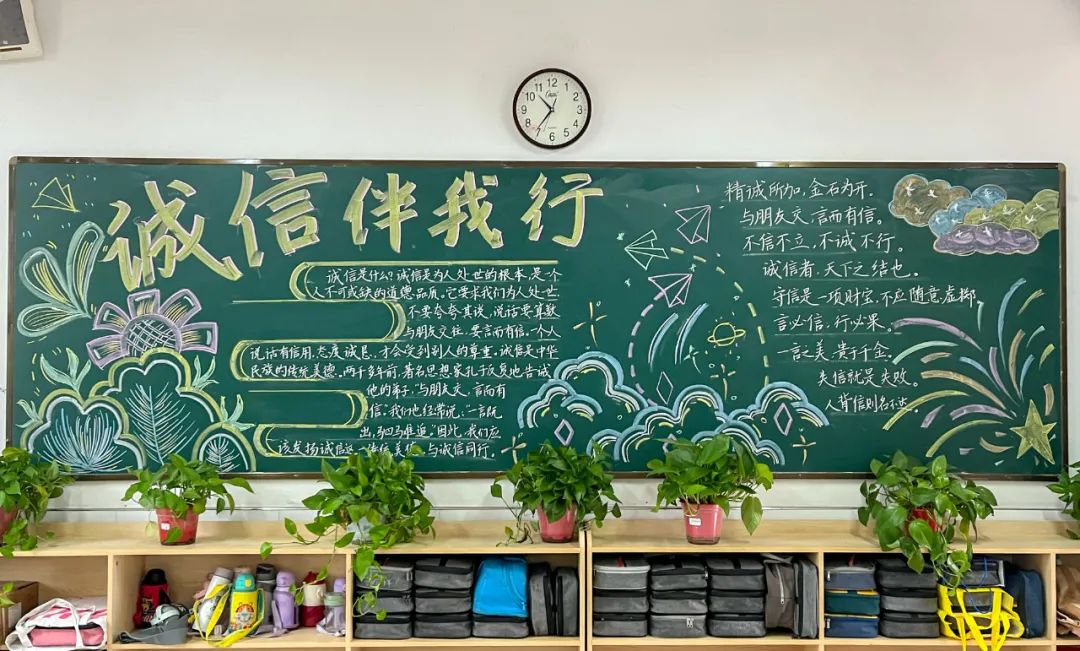 诚信伴我行
诚信是什么?诚信是为人处世的根本,是一个
人不可或缺的道德品质。它要求我们为人处世,
不要夸夸其谈,说话要算数
与朋友交往,要言而有信。一个人
说话有信用,态度诚恳,才会受到别人的尊重。诚信是中华
民族的传统美德。两千多年前,著名思想家孔子反复地告诫
他的弟子,“与朋友交,言而有
信。”我们也经常说,“一言既
出,驷马难追。”因此,我们应
该发扬诚信这一传统美德,与诚信同行。
精诚所加,金石为开。
与朋友交,言而有信。
不信不立,不诚不行。
诚信者,天下之结也。
守信是一项财宝,不应随意虚掷,
言必信,行必果。
一言之美,贵于千金。
失信就是失败。
人背信则名不达。
12
1
2
3
4
5
6
7
8
9
10
11